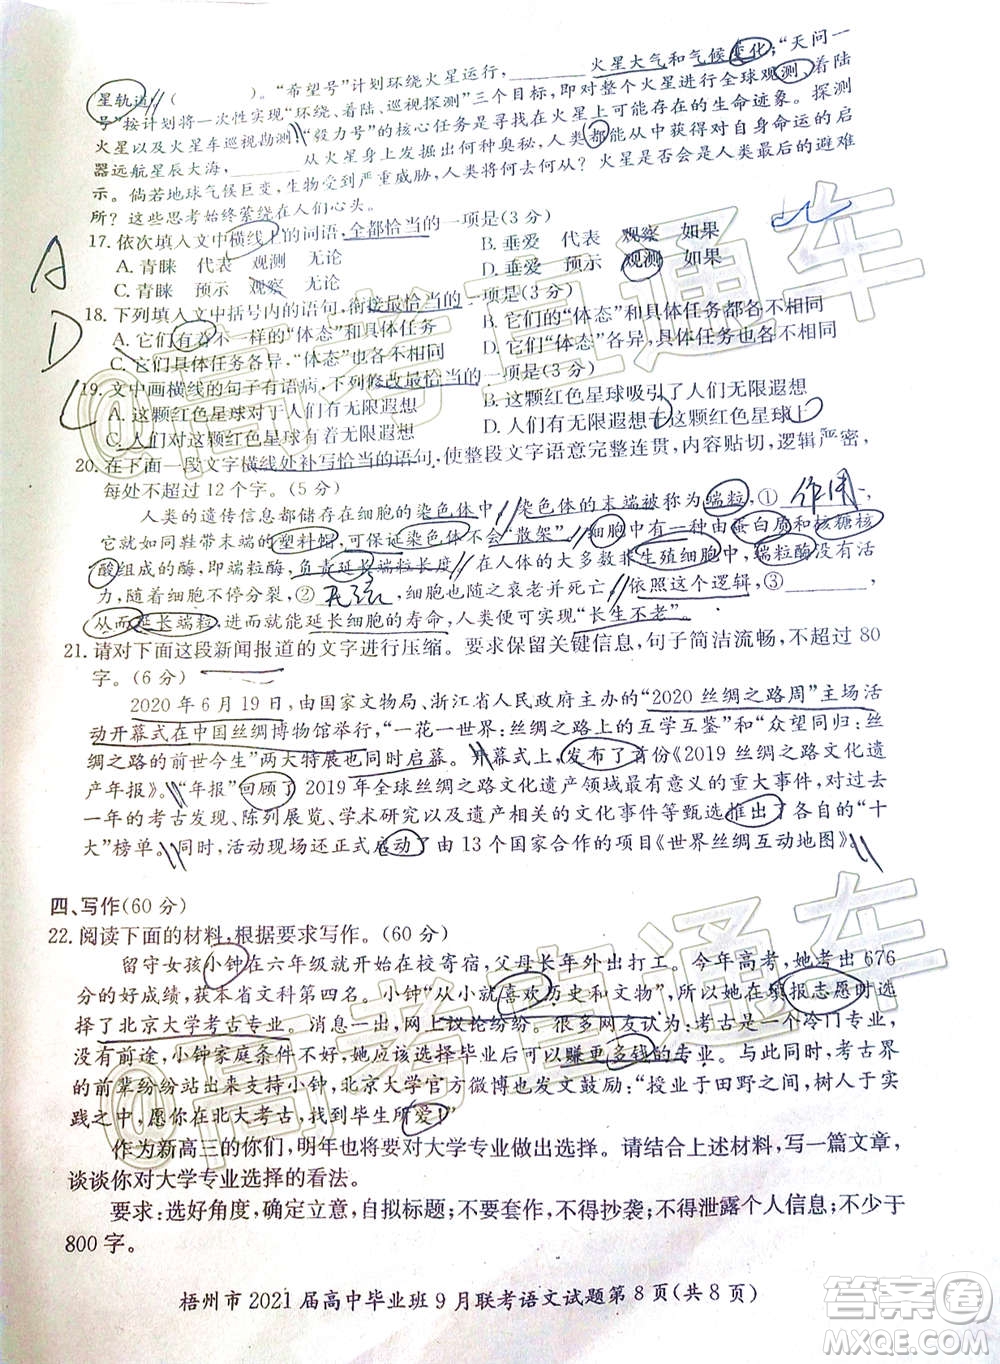 火星大气和气候变化;“天问一
号”计划环绕火星运行,
星轨道(　　)。“希望
号”按计划将一次性实现“环绕、着陆、巡视探测”三个目标,即对整个火星进行全球观测、着陆
火星以及火星车巡视勘测;“毅力号”的核心任务是寻找火星上可能存在的生命迹象。探测
器远航星辰大海,________从火星身上发掘出何种奥秘,人类都能从中获得对自身命运的启
示。倘若地球气候巨变,生物受到严重威胁,人类将何去何从?火星是否会是人类最后的避难
所?这些思考始终萦绕在人们心头。
17. 依次填入文中横线上的词语,全都恰当的一项是(3 分)
A. 青睐　代表　观测　无论　　B. 垂爱　代表　观察　如果
C. 青睐　预示　观察　无论　　D. 垂爱　预示　观测　如果
18. 下列填入文中括号内的语句,衔接最恰当的一项是(3 分)
A. 它们有着不一样的“体态”和具体任务　　B. 它们的“体态”和具体任务都各不相同
C. 它们具体任务各异,“体态”也各不相同　　D. 它们“体态”各异,具体任务也各不相同
19. 文中画横线的句子有语病,下列修改最恰当的一项是(3 分)
A. 这颗红色星球对于人们有无限遐想　　B. 这颗红色星球吸引了人们无限遐想
C. 人们对这颗红色星球有着无限遐想　　D. 人们无限遐想于这颗红色星球上
20. 在下面一段文字横线处补写恰当的语句,使整段文字语意完整连贯,内容贴切,逻辑严密,
每处不超过 12 个字。(5 分)
人类的遗传信息都储存在细胞的染色体中,染色体的末端被称为端粒,① 作用
它就如同鞋带末端的塑料帽,可保证染色体不会“散架”。细胞中有一种由蛋白质和核糖核
酸组成的酶,即端粒酶,负责延长端粒长度。在人体的大多数非生殖细胞中,端粒酶没有活
力,随着细胞不停分裂,②________,细胞也会逐渐衰老并死亡。依照这个逻辑,③________
从而延长端粒,进而就能延长细胞的寿命,人类就可以实现“长生不老”。
21. 请对下面这段新闻报道的文字进行压缩。要求保留关键信息,句子简洁流畅,不超过 80
字。(6 分)
2020 年 6 月 19 日,由国家文物局、浙江省人民政府主办的“2020 丝绸之路周”主场活
动开幕式在中国丝绸博物馆举行,“一花一世界:丝绸之路上的互学互鉴”和“众望同归:丝
绸之路的前世今生”两大特展也同时启幕。开幕式上,发布了首份《2019 丝绸之路文化遗
产年报》。“年报”回顾了 2019 年全球丝绸之路文化遗产领域最有意义的重大事件,还对过去
一年的考古发现、陈列展览、学术研究以及遗产相关的文化事件等甄选推出了各自的“十
大”榜单。同时,活动现场还正式启动了由 13 个国家合作的项目《世界丝绸互动地图》。
四、写作(60 分)
22. 阅读下面的材料,根据要求写作。(60 分)
留守女孩小钟在六年级就开始在校寄宿,父母长年外出打工。今年高考,她考出 676
分的好成绩,获本省文科第四名。小钟“从小就喜欢历史和文物”,所以她在填报志愿时选
择了北京大学考古专业。消息一出,网上议论纷纷。很多网友认为:考古是一个冷门专业,
没有前途,小钟家庭条件不好,应该选择毕业后可以赚更多钱的专业。与此同时,考古界
的前辈纷纷站出来支持小钟,北京大学官方微博也发文鼓励:“授业于田野之间,树人于实
践之中,愿你在北大考古,找到毕生所爱!”
作为新高三的你们,明年也将要对大学专业做出选择。请结合上述材料,写一篇文章,
谈谈你对大学专业选择的看法。
要求:选好角度,确定立意,自拟标题;不要套作,不得抄袭;不得泄露个人信息;不少于
800 字。
梧州市 2021 届高中毕业班 9 月联考语文试题第 8 页(共 8 页)
A
D
C
@高考直通车
答案圈
MXQE.COM